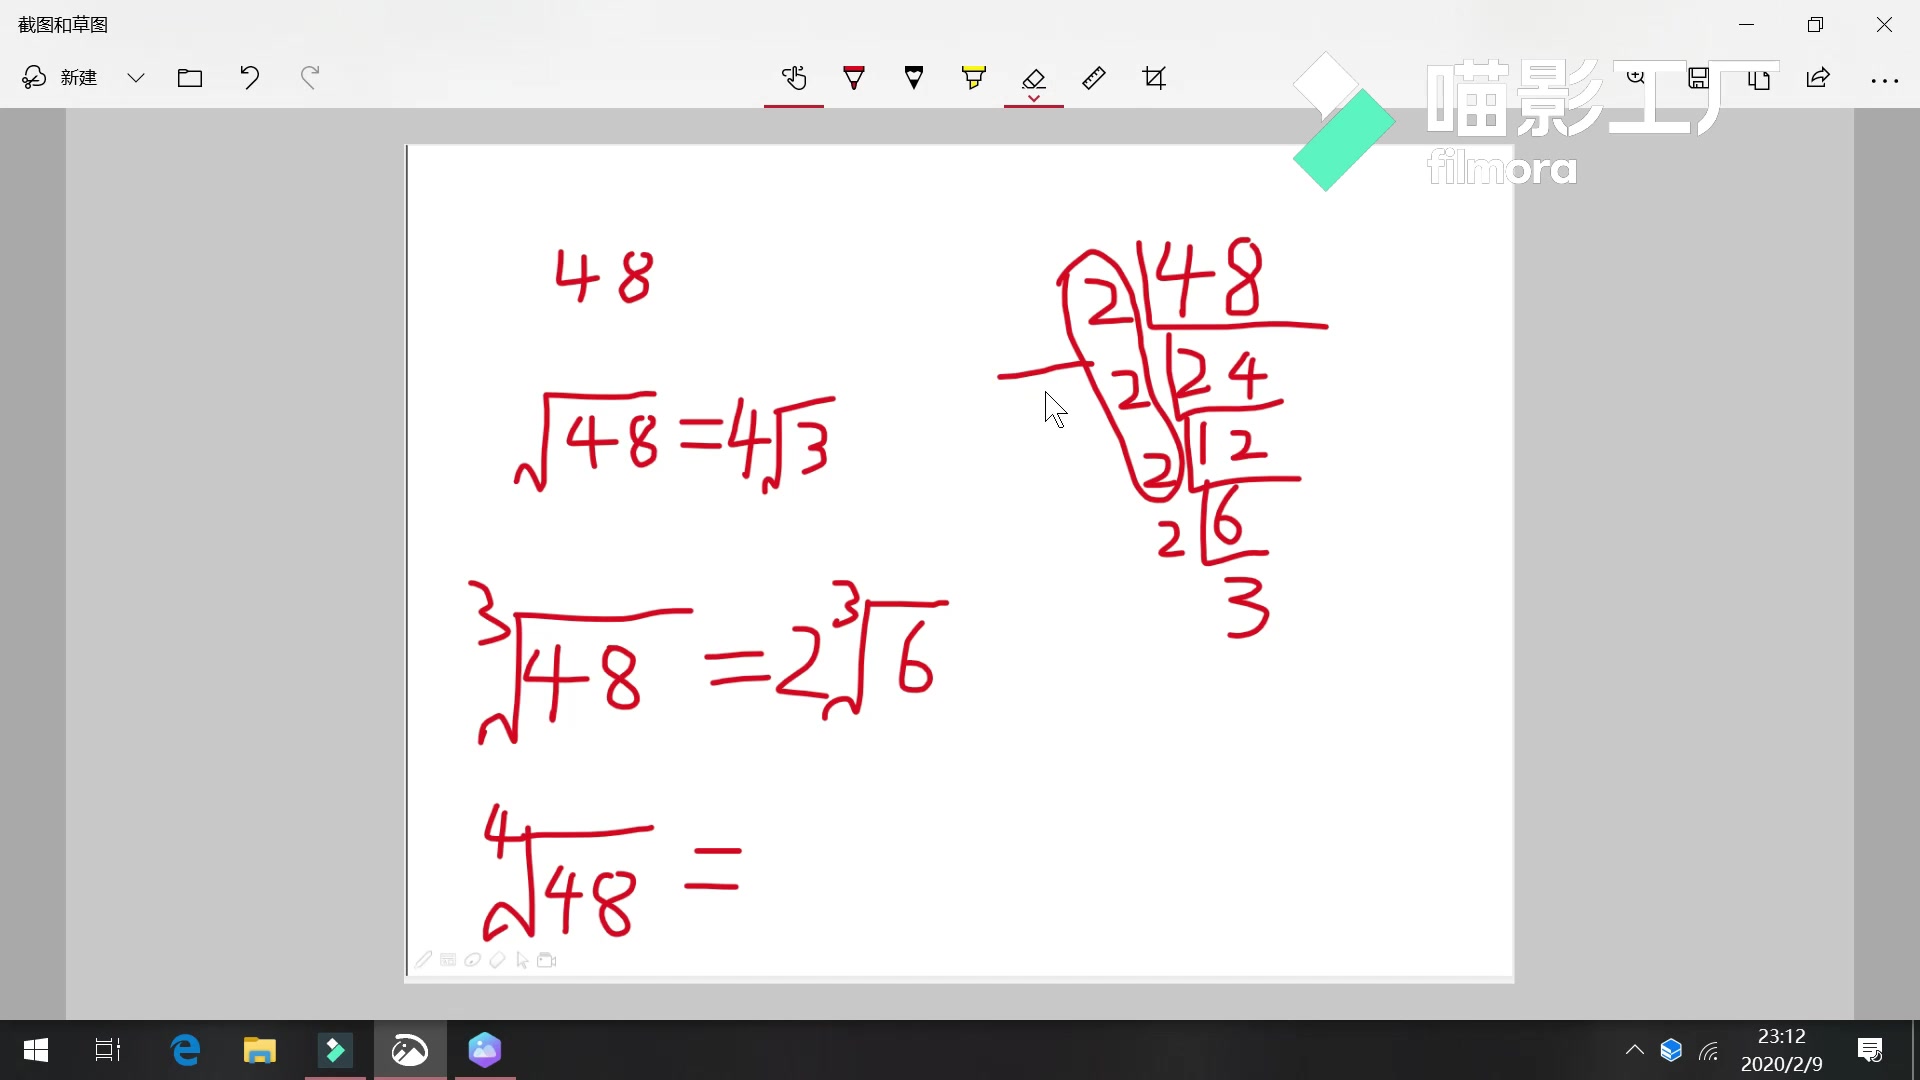 截图和草图
新建
喵影工厂
filmora
48
√48=4√3
∛48=2∛6
∜48=
2 48
2 24
2 12
2 6
3
23:12
2020/2/9